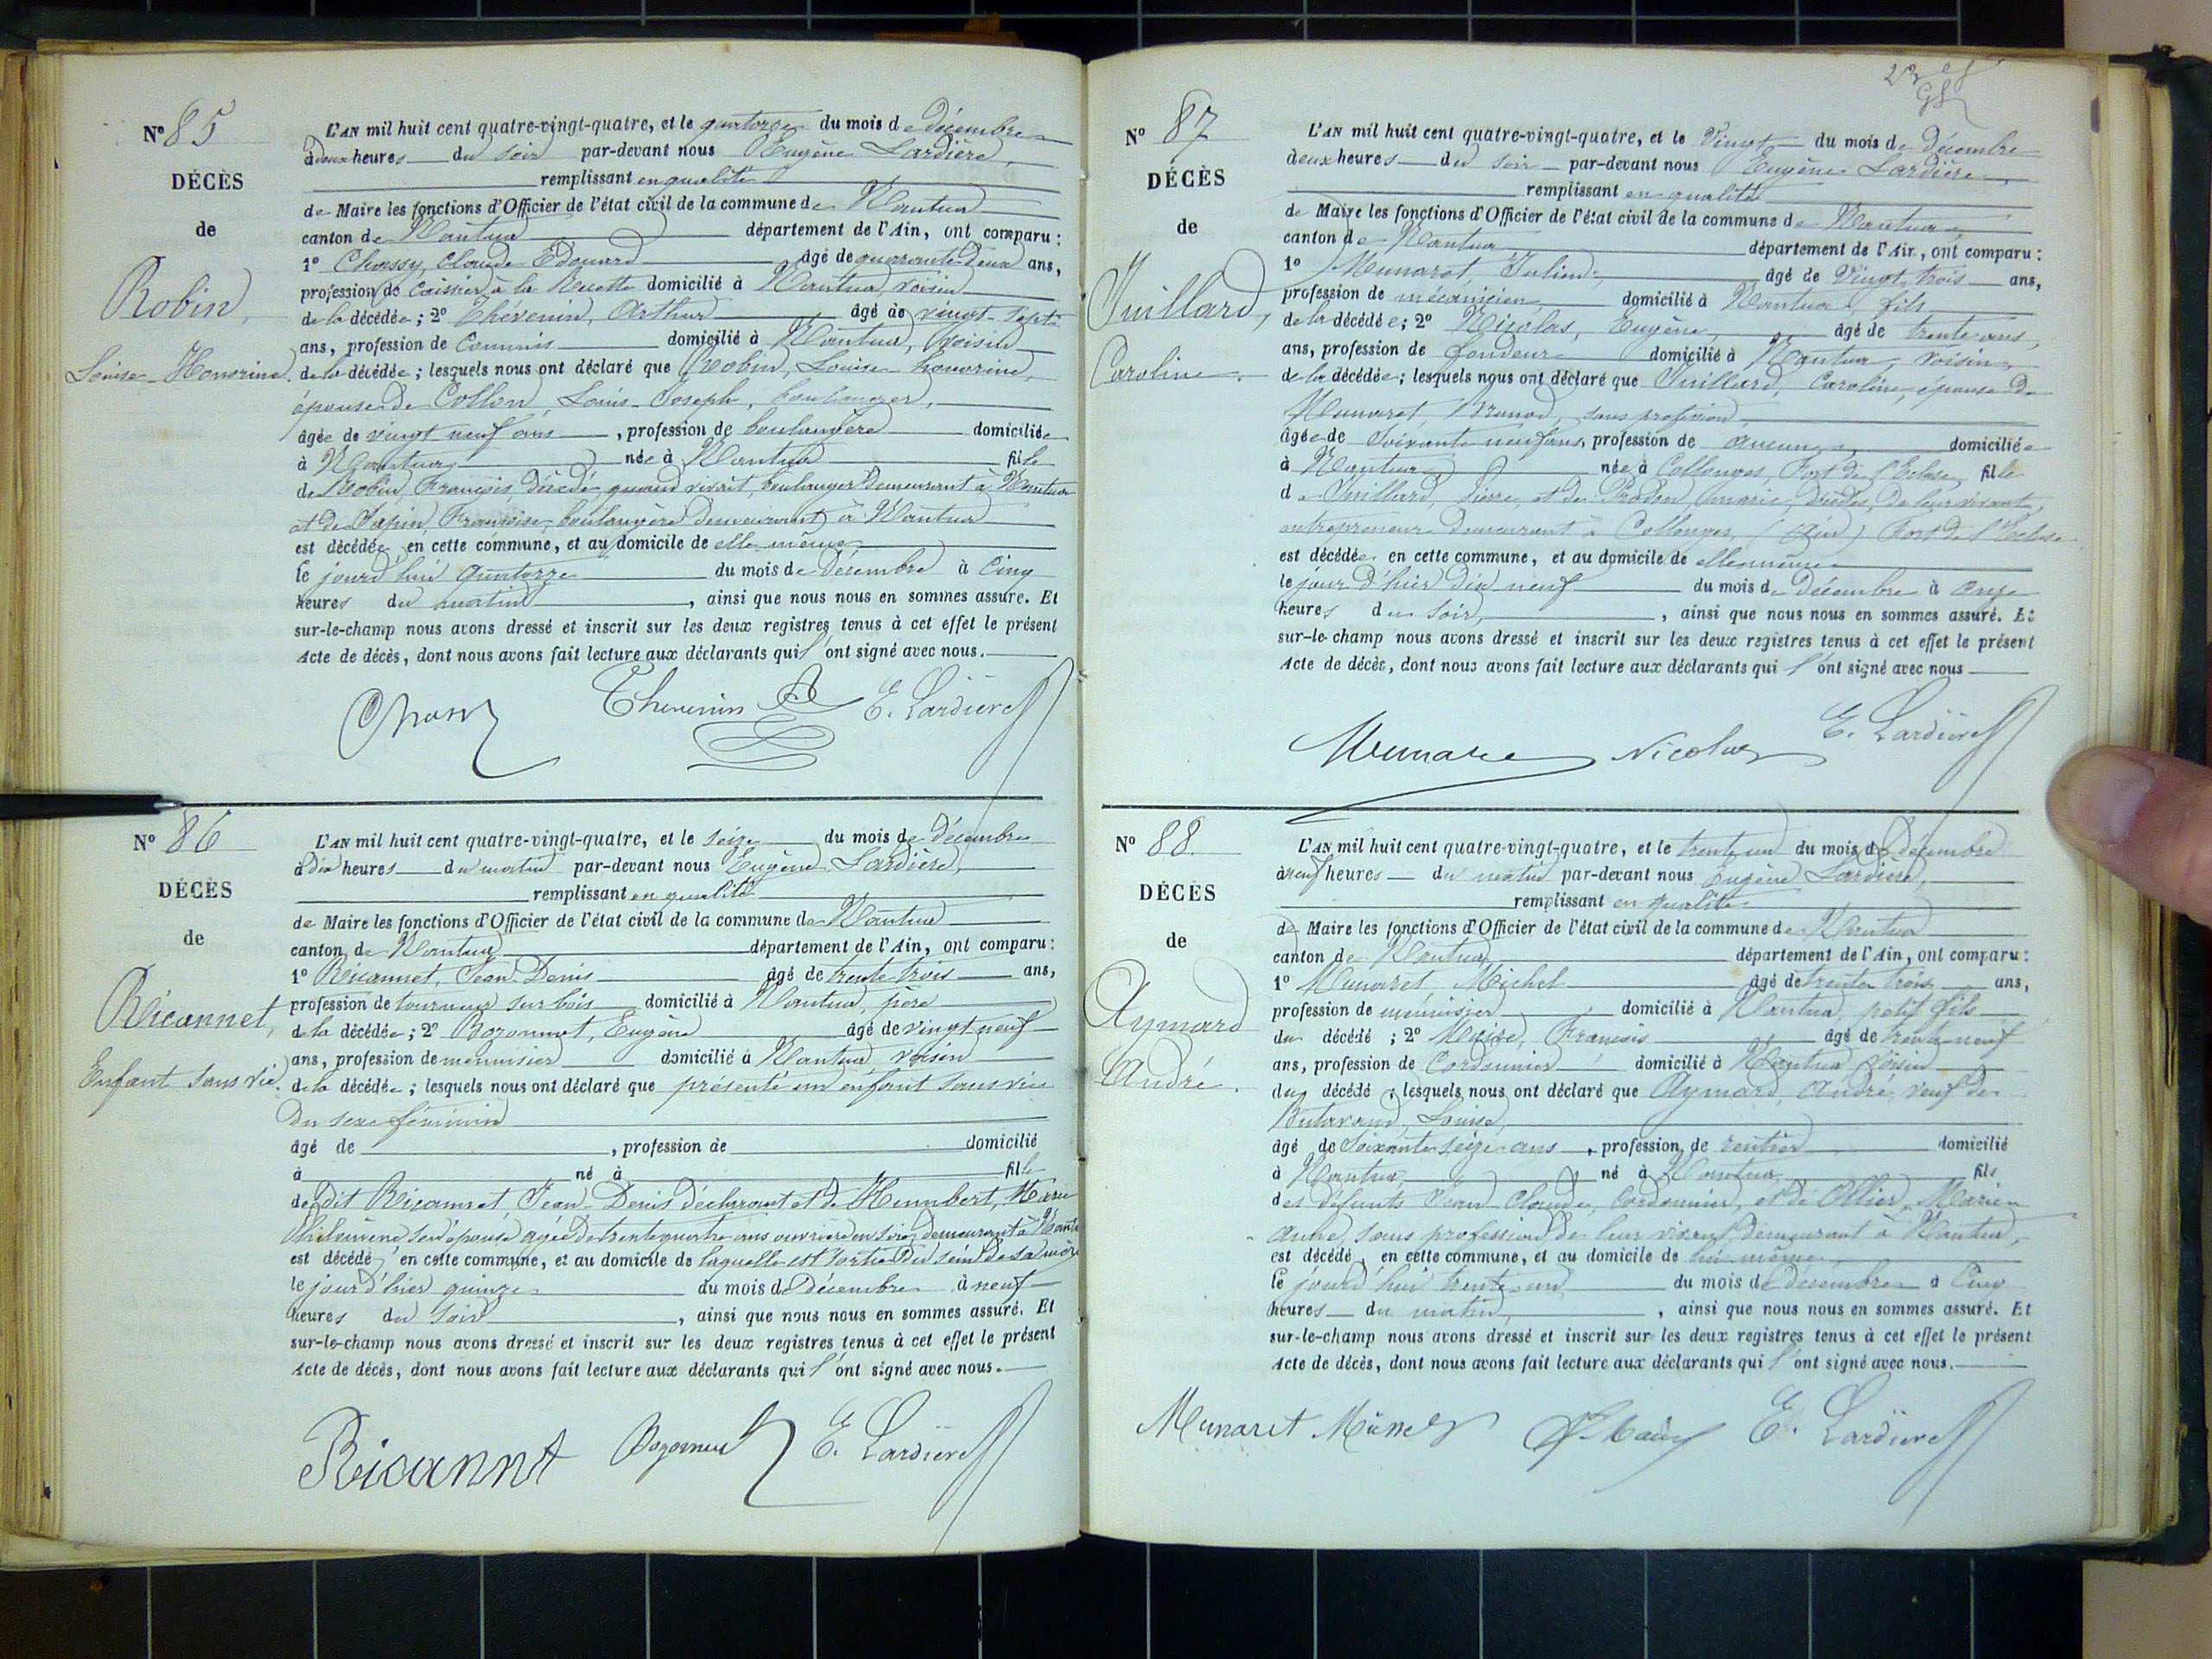 N° 85
DÉCÈS
de
Robin,
Louise-Honorine.
L'AN mil huit cent quatre-vingt-quatre, et le quatorze du mois de décembre
à deux heures du soir par-devant nous Eugène Lardière,
remplissant en qualité
de Maire les fonctions d'Officier de l'état civil de la commune de Nantua
canton de Nantua département de l'Ain, ont comparu :
1° Chassy, Claude Edouard âgé de quarante deux ans,
profession de Caissier à la Recette domicilié à Nantua voisin
de la décédée ; 2° Thévenin, Arthur âgé de vingt-sept
ans, profession de Commis domicilié à Nantua, voisin
de la décédée ; lesquels nous ont déclaré que Robin, Louise honorine,
épouse de Collon, Louis-Joseph, boulanger,
âgée de vingt neuf ans, profession de boulangère domiciliée
à Nantua née à Nantua fille
de Robin François, décédé, quand vivait, boulanger demeurant à Nantua
et de Françoise, boulangère demeurant à Nantua
est décédée en cette commune, et au domicile de elle même
le jourd'hui quatorze du mois de décembre à Cinq
heures du matin, ainsi que nous nous en sommes assuré. Et
sur-le-champ nous avons dressé et inscrit sur les deux registres tenus à cet effet le présent
Acte de décès, dont nous avons fait lecture aux déclarants qui l'ont signé avec nous.
Chassy Thevenin A E. Lardière
N° 86
DÉCÈS
de
Ricannet,
Enfant sans vie.
L'AN mil huit cent quatre-vingt-quatre, et le seize du mois de décembre
à dix heures du matin par-devant nous Eugène Lardière,
remplissant en qualité
de Maire les fonctions d'Officier de l'état civil de la commune de Nantua
canton de Nantua département de l'Ain, ont comparu :
1° Ricannet, Jean-Denis âgé de trente trois ans,
profession de tourneur sur bois domicilié à Nantua, père
de la décédée ; 2° Bozonnet, Eugène âgé de vingt neuf
ans, profession de menuisier domicilié à Nantua voisin
de la décédée ; lesquels nous ont déclaré que présenté un enfant sans vie
du sexe féminin
âgé de , profession de domicilié
à né à fille
de dit Ricannet, Jean-Denis déclarant et de Humbert, Marie
Philomène son épouse âgée de trente quatre ans ouvrière en soie demeurant à Nantua
est décédé en cette commune, et au domicile de laquelle est sortie du sein de sa mère
le jour d'hier quinze du mois de décembre à neuf
heures du soir, ainsi que nous nous en sommes assuré. Et
sur-le-champ nous avons dressé et inscrit sur les deux registres tenus à cet effet le présent
Acte de décès, dont nous avons fait lecture aux déclarants qui l'ont signé avec nous.
Ricannt Bozonnet E. Lardière
N° 87
DÉCÈS
de
Juillard,
Caroline.
L'AN mil huit cent quatre-vingt-quatre, et le Vingt du mois de Décembre
deux heures du soir par-devant nous Eugène Lardière,
remplissant en qualité
de Maire les fonctions d'Officier de l'état civil de la commune de Nantua
canton de Nantua département de l'Ain, ont comparu :
1° Munaret, Julien, âgé de Vingt trois ans,
profession de mécanicien domicilié à Nantua, fils
de la décédée ; 2° Nicolas, Eugène, âgé de trente ans,
ans, profession de fondeur domicilié à Nantua, voisin,
de la décédée ; lesquels nous ont déclaré que Juillard, Caroline, épouse de
Munaret, sans profession
âgée de Soixante neuf ans, profession de aucune domiciliée
à Nantua née à Collonges, Fort de l'Ecluse, fille
de Juillard, Pierre, et de Prodon, Marie, décédés, de leur vivant
entrepreneur demeurant à Collonges, (Ain) Fort de l'Ecluse
est décédée en cette commune, et au domicile de elle même
le jour d'hier dix neuf du mois de Décembre à onze
heures du soir, ainsi que nous nous en sommes assuré. Et
sur-le-champ nous avons dressé et inscrit sur les deux registres tenus à cet effet le présent
Acte de décès, dont nous avons fait lecture aux déclarants qui l'ont signé avec nous
Munaret Nicolas E. Lardière
N° 88
DÉCÈS
de
Aymard
André.
L'AN mil huit cent quatre-vingt-quatre, et le trente un du mois de décembre
à neuf heures du matin par-devant nous Eugène Lardière,
remplissant en qualité
de Maire les fonctions d'Officier de l'état civil de la commune de Nantua
canton de Nantua département de l'Ain, ont comparu :
1° Munaret, Michel âgé de trente trois ans,
profession de menuisier domicilié à Nantua, petit fils
du décédé ; 2° François âgé de trente-neuf
ans, profession de Cordonnier domicilié à Nantua voisin
du décédé ; lesquels nous ont déclaré que Aymard, André, veuf de
Butavand, Louise,
âgé de Soixante seize ans, profession de rentier domicilié
à Nantua, né à Nantua fils
des défunts Jean-Claude, Cordonnier, et de Ollier, Marie
Anne, sans profession de leur vivant demeurant à Nantua,
est décédé, en cette commune, et au domicile de lui même
le jourd'hui trente un du mois de décembre à Cinq
heures du matin, ainsi que nous nous en sommes assuré. Et
sur-le-champ nous avons dressé et inscrit sur les deux registres tenus à cet effet le présent
Acte de décès, dont nous avons fait lecture aux déclarants qui l'ont signé avec nous.
Munaret E. Lardière